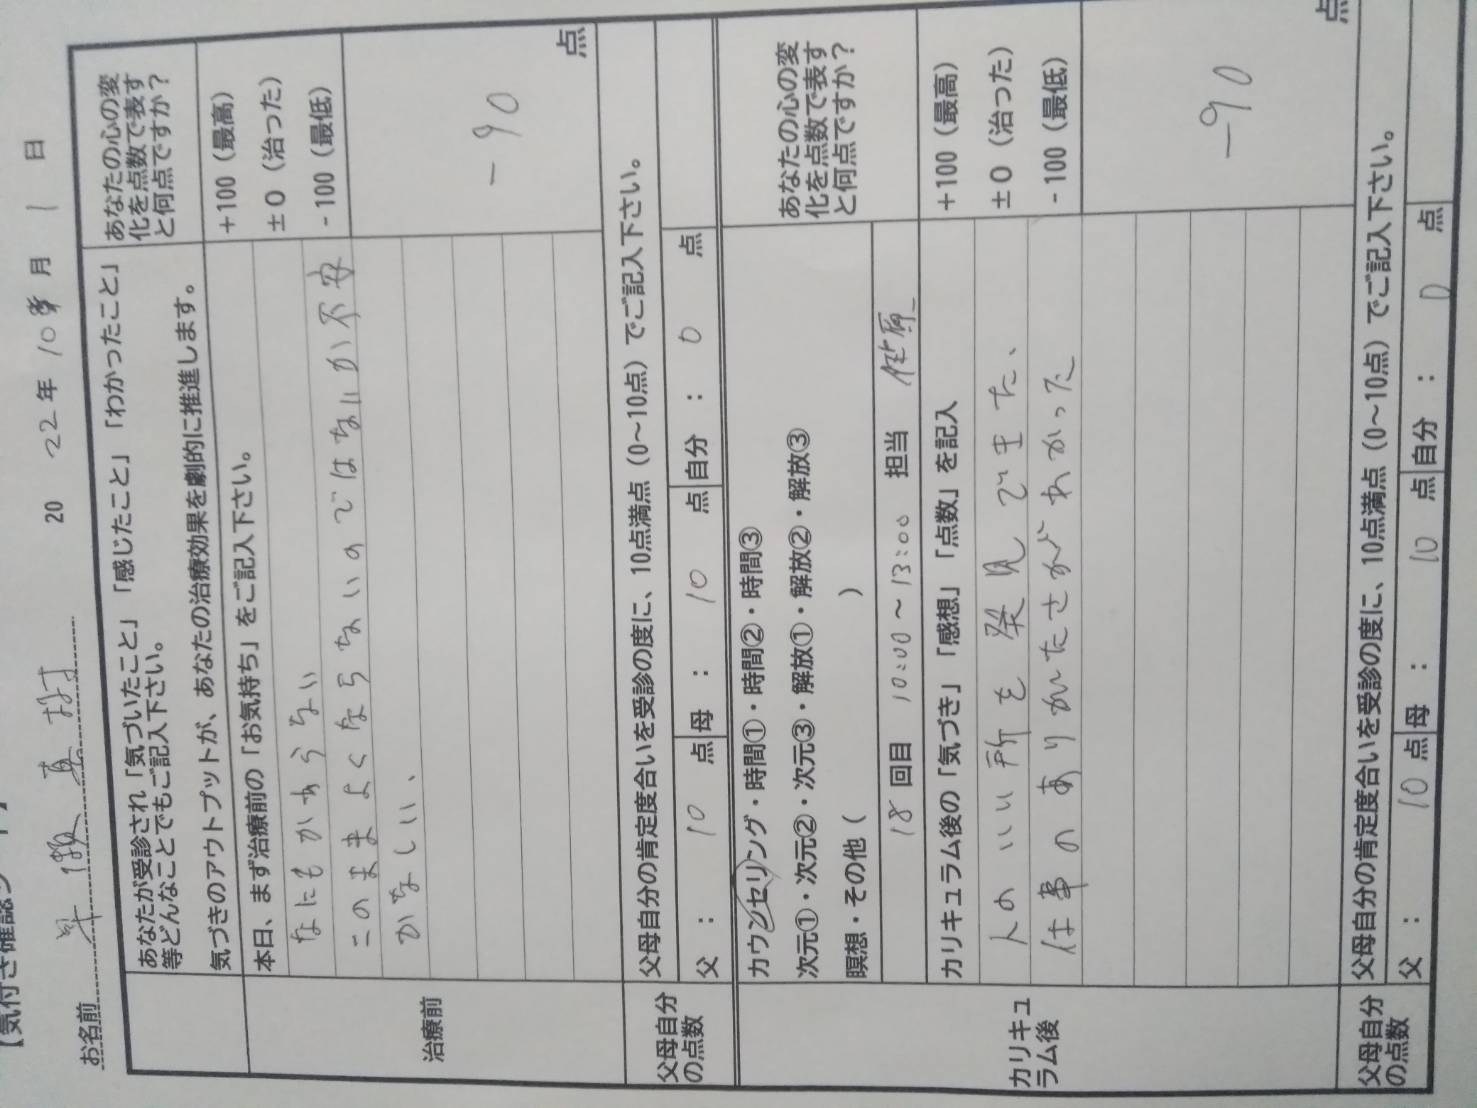 【気付き確認シート】
お名前
20 22年 10月 1日
あなたが受診され「気づいたこと」「感じたこと」「わかったこと」
等どんなことでもご記入下さい。
気づきのアウトプットが、あなたの治療効果を劇的に推進します。
あなたの心の変
化を点数で表す
と何点ですか?
治療前
本日、まず治療前の「お気持ち」をご記入下さい。
なにもかわらない
このままよくならないのではないか不安
かなしい、
+100(最高)
±0(治った)
-100(最低)
-90
点
父母自分
の点数
父母自分の肯定度合いを受診の度に、10点満点(0~10点)でご記入下さい。
父: 10 点 母: 10 点 自分: 0 点
カウンセリング・時間①・時間②・時間③
次元①・次元②・次元③・解放①・解放②・解放③
瞑想・その他( )
18 回目 10:00~13:00 担当
あなたの心の変
化を点数で表す
と何点ですか?
カリキュ
ラム後
カリキュラム後の「気づき」「感想」「点数」を記入
人のいい所を発見できた、
仕事のありがたさがわかった
+100(最高)
±0(治った)
-100(最低)
-90
点
父母自分
の点数
父母自分の肯定度合いを受診の度に、10点満点(0~10点)でご記入下さい。
父: 10点 母: 10 点 自分: 0 点